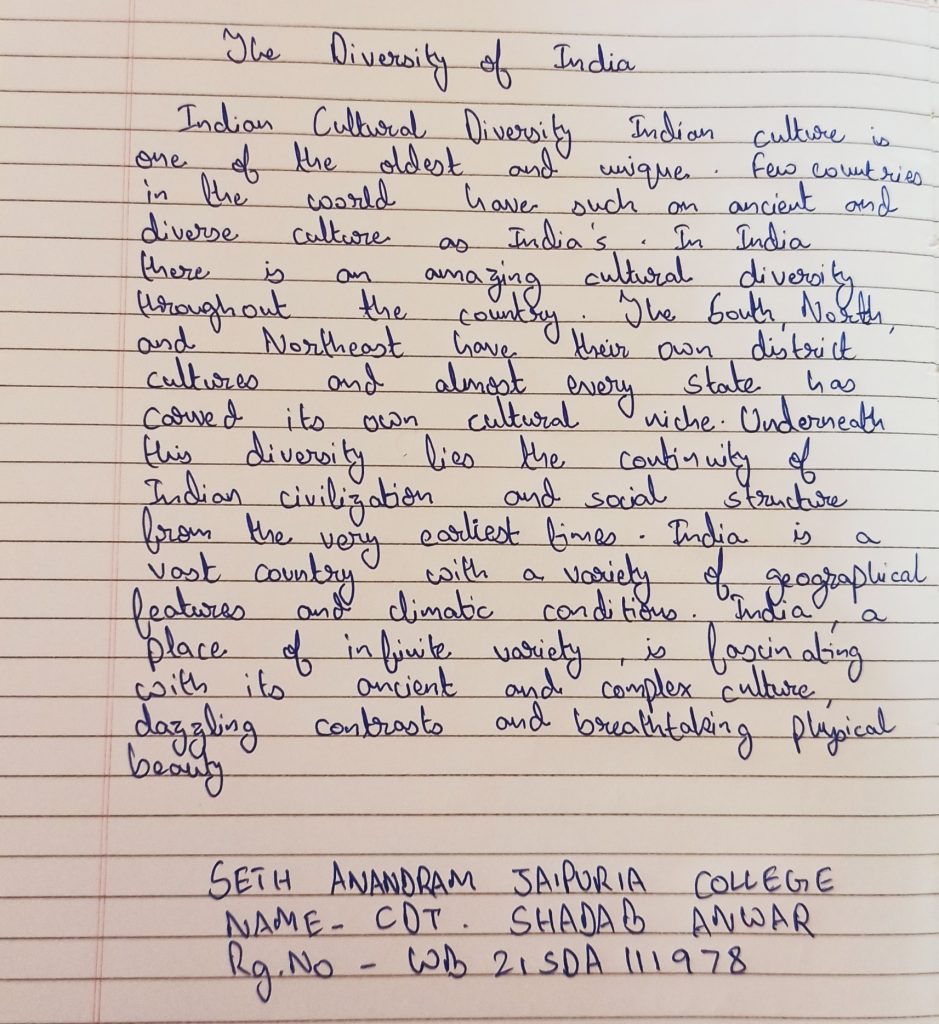 The Diversity of India
Indian Cultural Diversity Indian culture is
one of the oldest and unique. Few countries
in the world have such an ancient and
diverse culture as India's. In India
there is an amazing cultural diversity
throughout the country. The South, North,
and Northeast have their own district
cultures and almost every state has
carved its own cultural niche. Underneath
this diversity lies the continuity of
Indian civilization and social structure
from the very earliest times. India is a
vast country with a variety of geographical
features and climatic conditions. India, a
place of infinite variety, is fascinating
with its ancient and complex culture,
dazzling contrasts and breathtaking physical
beauty
SETH ANANDRAM JAIPURIA COLLEGE
NAME- CDT. SHADAB ANWAR
Rg.No - WB 21 SDA 111978